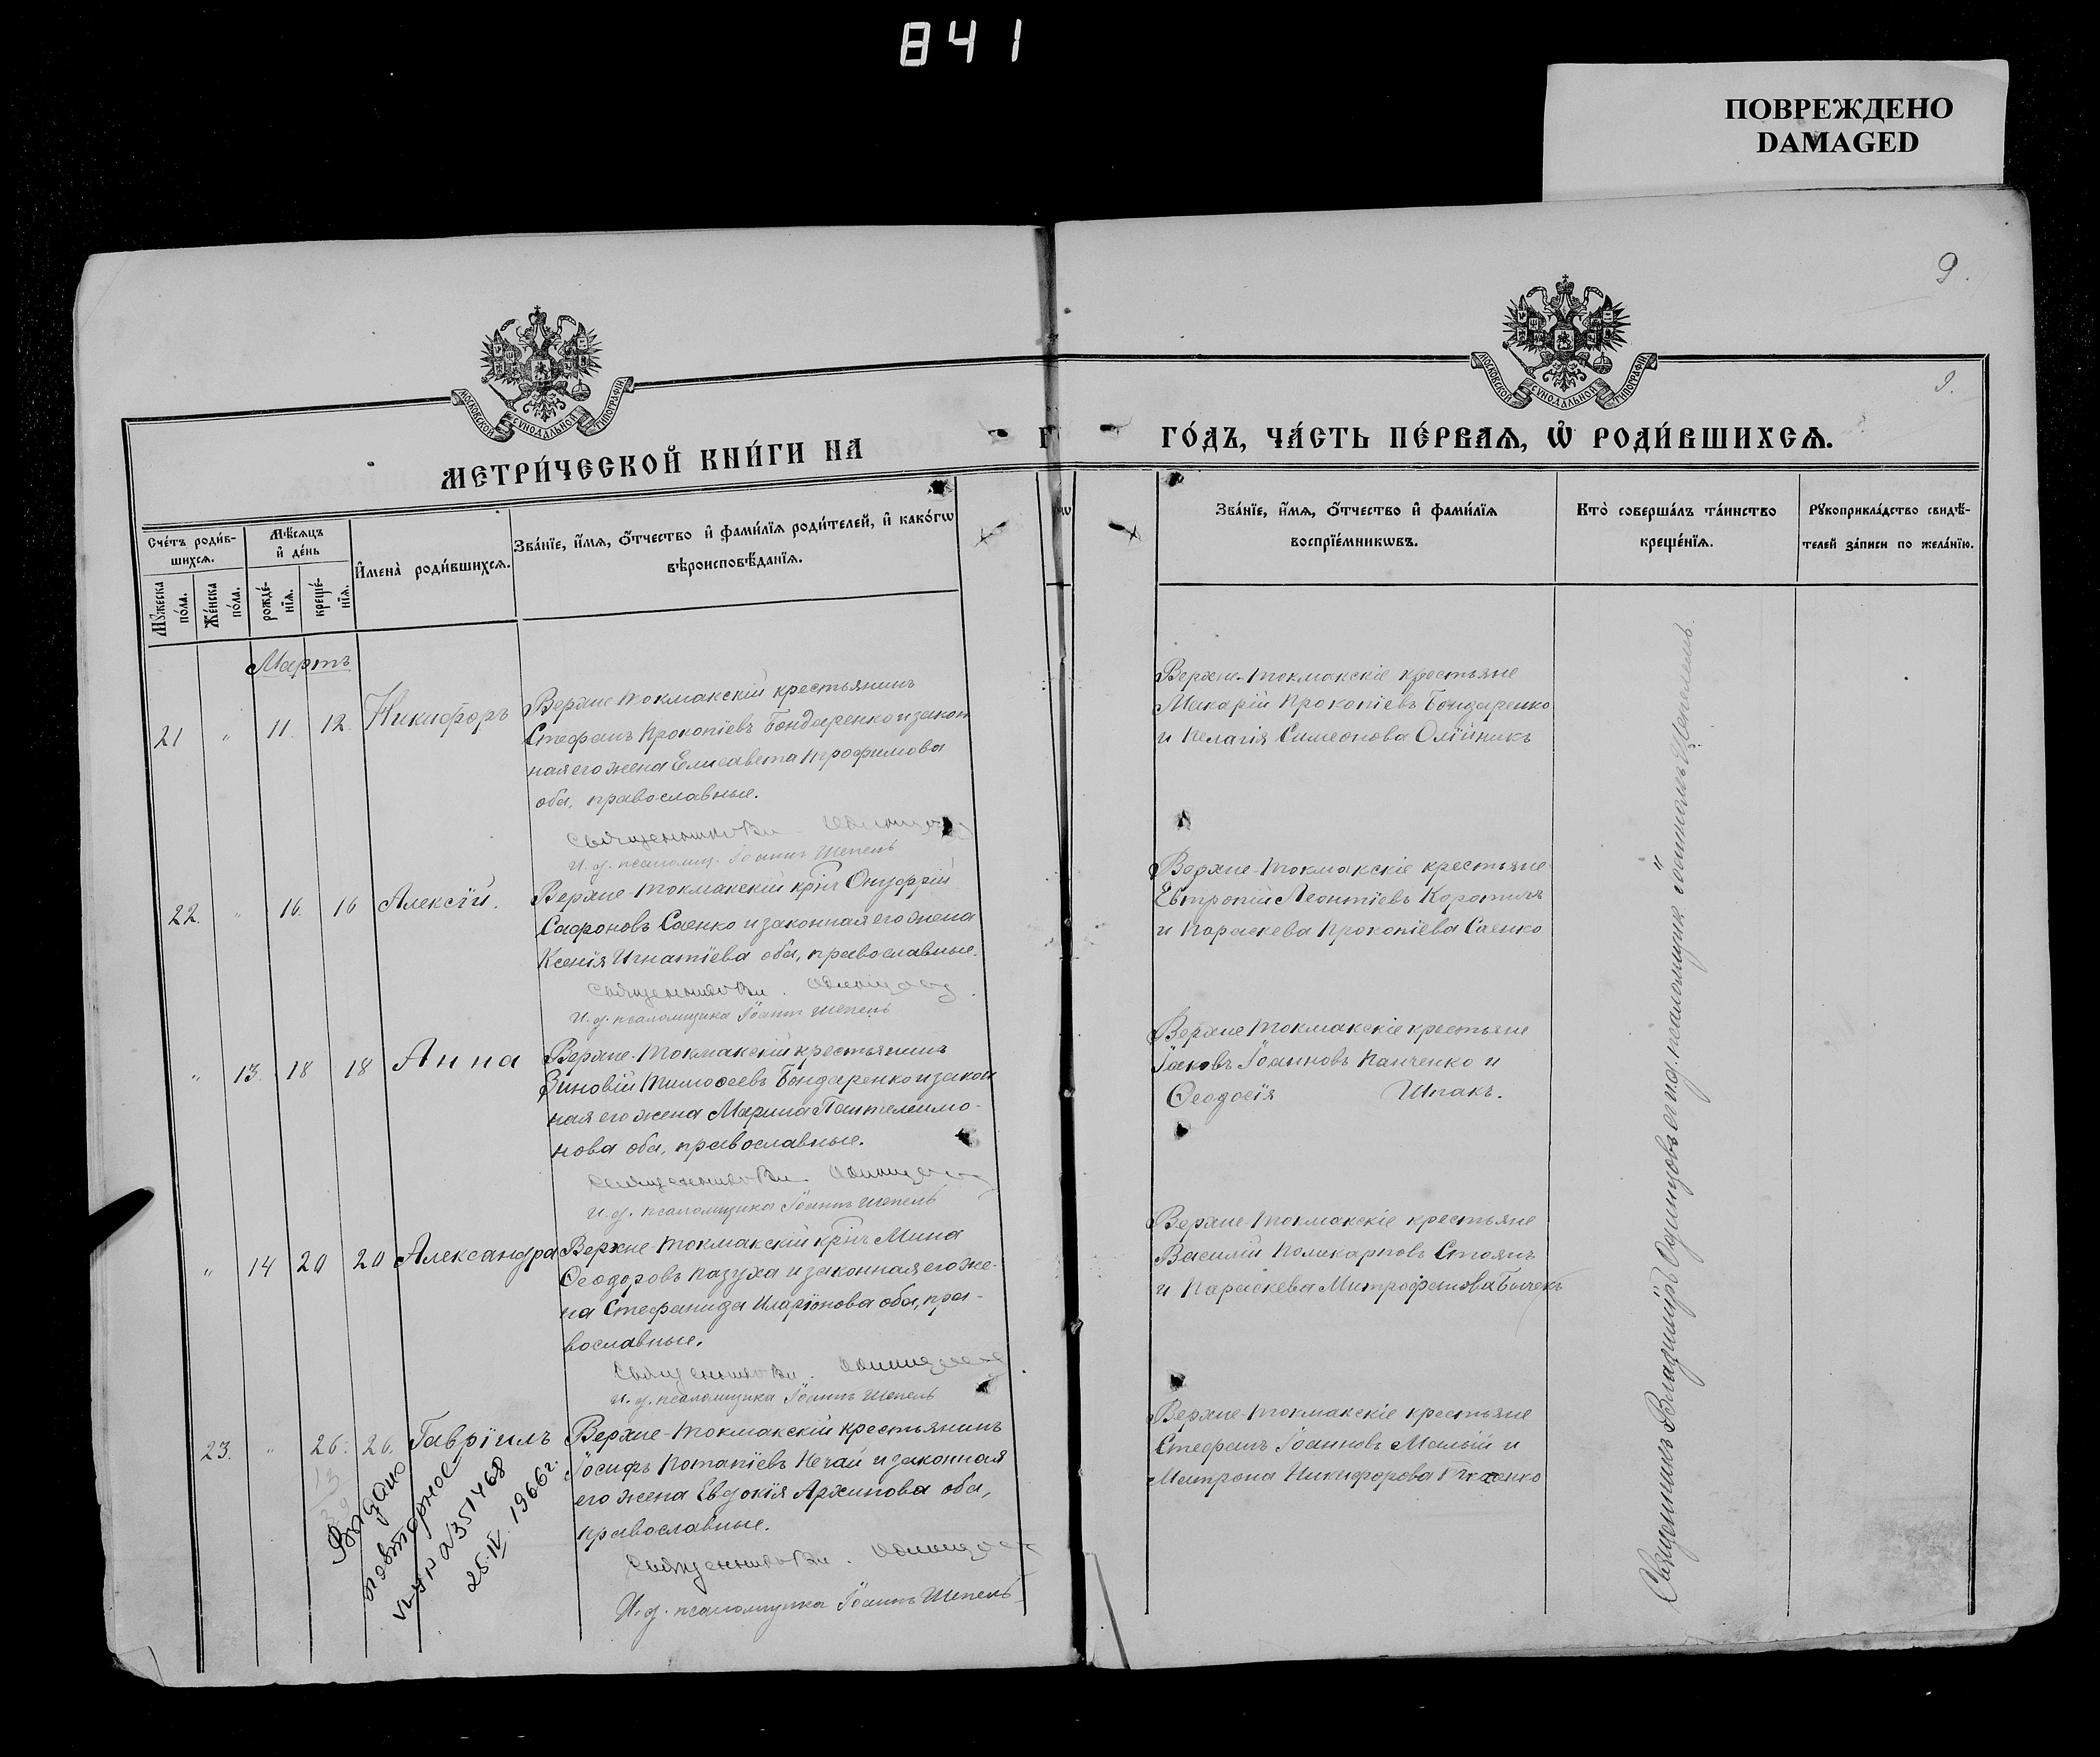 841
ПОВРЕЖДЕНО
DAMAGED
9.
9.
МОСКОВСКОЙ СУНОДАЛЬНОЙ ТИПОГРАФІИ
МОСКОВСКОЙ СУНОДАЛЬНОЙ ТИПОГРАФІИ
МЕТРИ́ЧЕСКОЙ КНИ́ГИ НА
ГО́ДЪ, ЧА́СТЬ ПЕ́РВАѦ, Ѡ҆ РОДИ́ВШИХСѦ.
Сче́тъ роди́в-
шихсѧ.
Мꙋ́жеска
по́ла.
Же́нска
по́ла.
Мѣ́сѧцъ
и҆ де́нь
рожде́-
нїѧ.
креще́-
нїѧ.
И҆мена̀ роди́вшихсѧ.
Зва́нїе, и҆́мѧ, ѻ҆́тчество и҆ фами́лїѧ роди́телей, и҆ како́гѡ
вѣроисповѣ́данїѧ.
Зва́нїе, и҆́мѧ, ѻ҆́тчество и҆ фами́лїѧ
воспрїе́мникѡвъ.
Кто̀ соверша́лъ та́инство
креще́нїѧ.
Рꙋкоприкла́дство свидѣ́-
телей за́писи по жела́нїю.
Мартъ
21 „ 11. 12. Никифоръ
Верхне Токмакскій крестьянинъ
Стефанъ Прокопіевъ Бондаренко и закон
ная его жена Елисавета Трофимова
оба, православные.
Священникъ Вл. Одинцовъ
И. д. псаломщ. Іоаннъ Шепель
Верхне-Токмакскіе крестьяне
Макарій Прокопіевъ Бондаренко
и Пелагія Симеонова Олійникъ
22. „ 16. 16 Алексій.
Верхне-Токмакскій крнъ Онуфрій
Сафоновъ Саенко и законная его жена
Ксенія Игнатіева оба, православные.
Священникъ Вл. Одинцовъ
И. д. псаломщика Іоаннъ Шепель
Верхне-Токмакскіе крестьяне
Евтропій Леонтіевъ Коротичъ
и Параскева Прокопіева Саенко
„ 13. 18 18 Анна
Верхне-Токмакскій крестьянинъ
Зиновій Тимоѳеевъ Бондаренко и закон
ная его жена Марина Пантелеимо-
нова оба, православные.
Священникъ Вл. Одинцовъ
И. д. псаломщика Іоаннъ Шепель
Верхне Токмакскіе крестьяне
Іаковъ Іоанновъ Панченко и
Ѳеодосія Шпакъ.
„ 14 20 20 Александра
Верхне Токмакскій крнъ Мина
Ѳеодоровъ Пазуха и законная его же-
на Стефанида Иларіонова оба, пра-
вославные.
Священникъ Вл. Одинцовъ
И. д. псаломщика Іоаннъ Шепель
Верхне-Токмакскіе крестьяне
Василій Поликарповъ Стоянъ
и Параскева Митрофанова Бычекъ
23. „ 26. 26. Гавріилъ
Верхне-Токмакскій крестьянинъ
Іосифъ Потапіевъ Нечай и законная
его жена Евдокія Архипова оба,
православные.
Священникъ Вл. Одинцовъ
И. д. псаломщика Іоаннъ Шепель
Верхне-Токмакскіе крестьяне
Стефанъ Іоанновъ Малый и
Матрона Никифорова Ткаченко
Выдано
повторное
351468
25.IV.1966г.
Священникъ Владиміръ Одинцовъ съ и.д. псаломщик. Іоанномъ Шепелемъ.